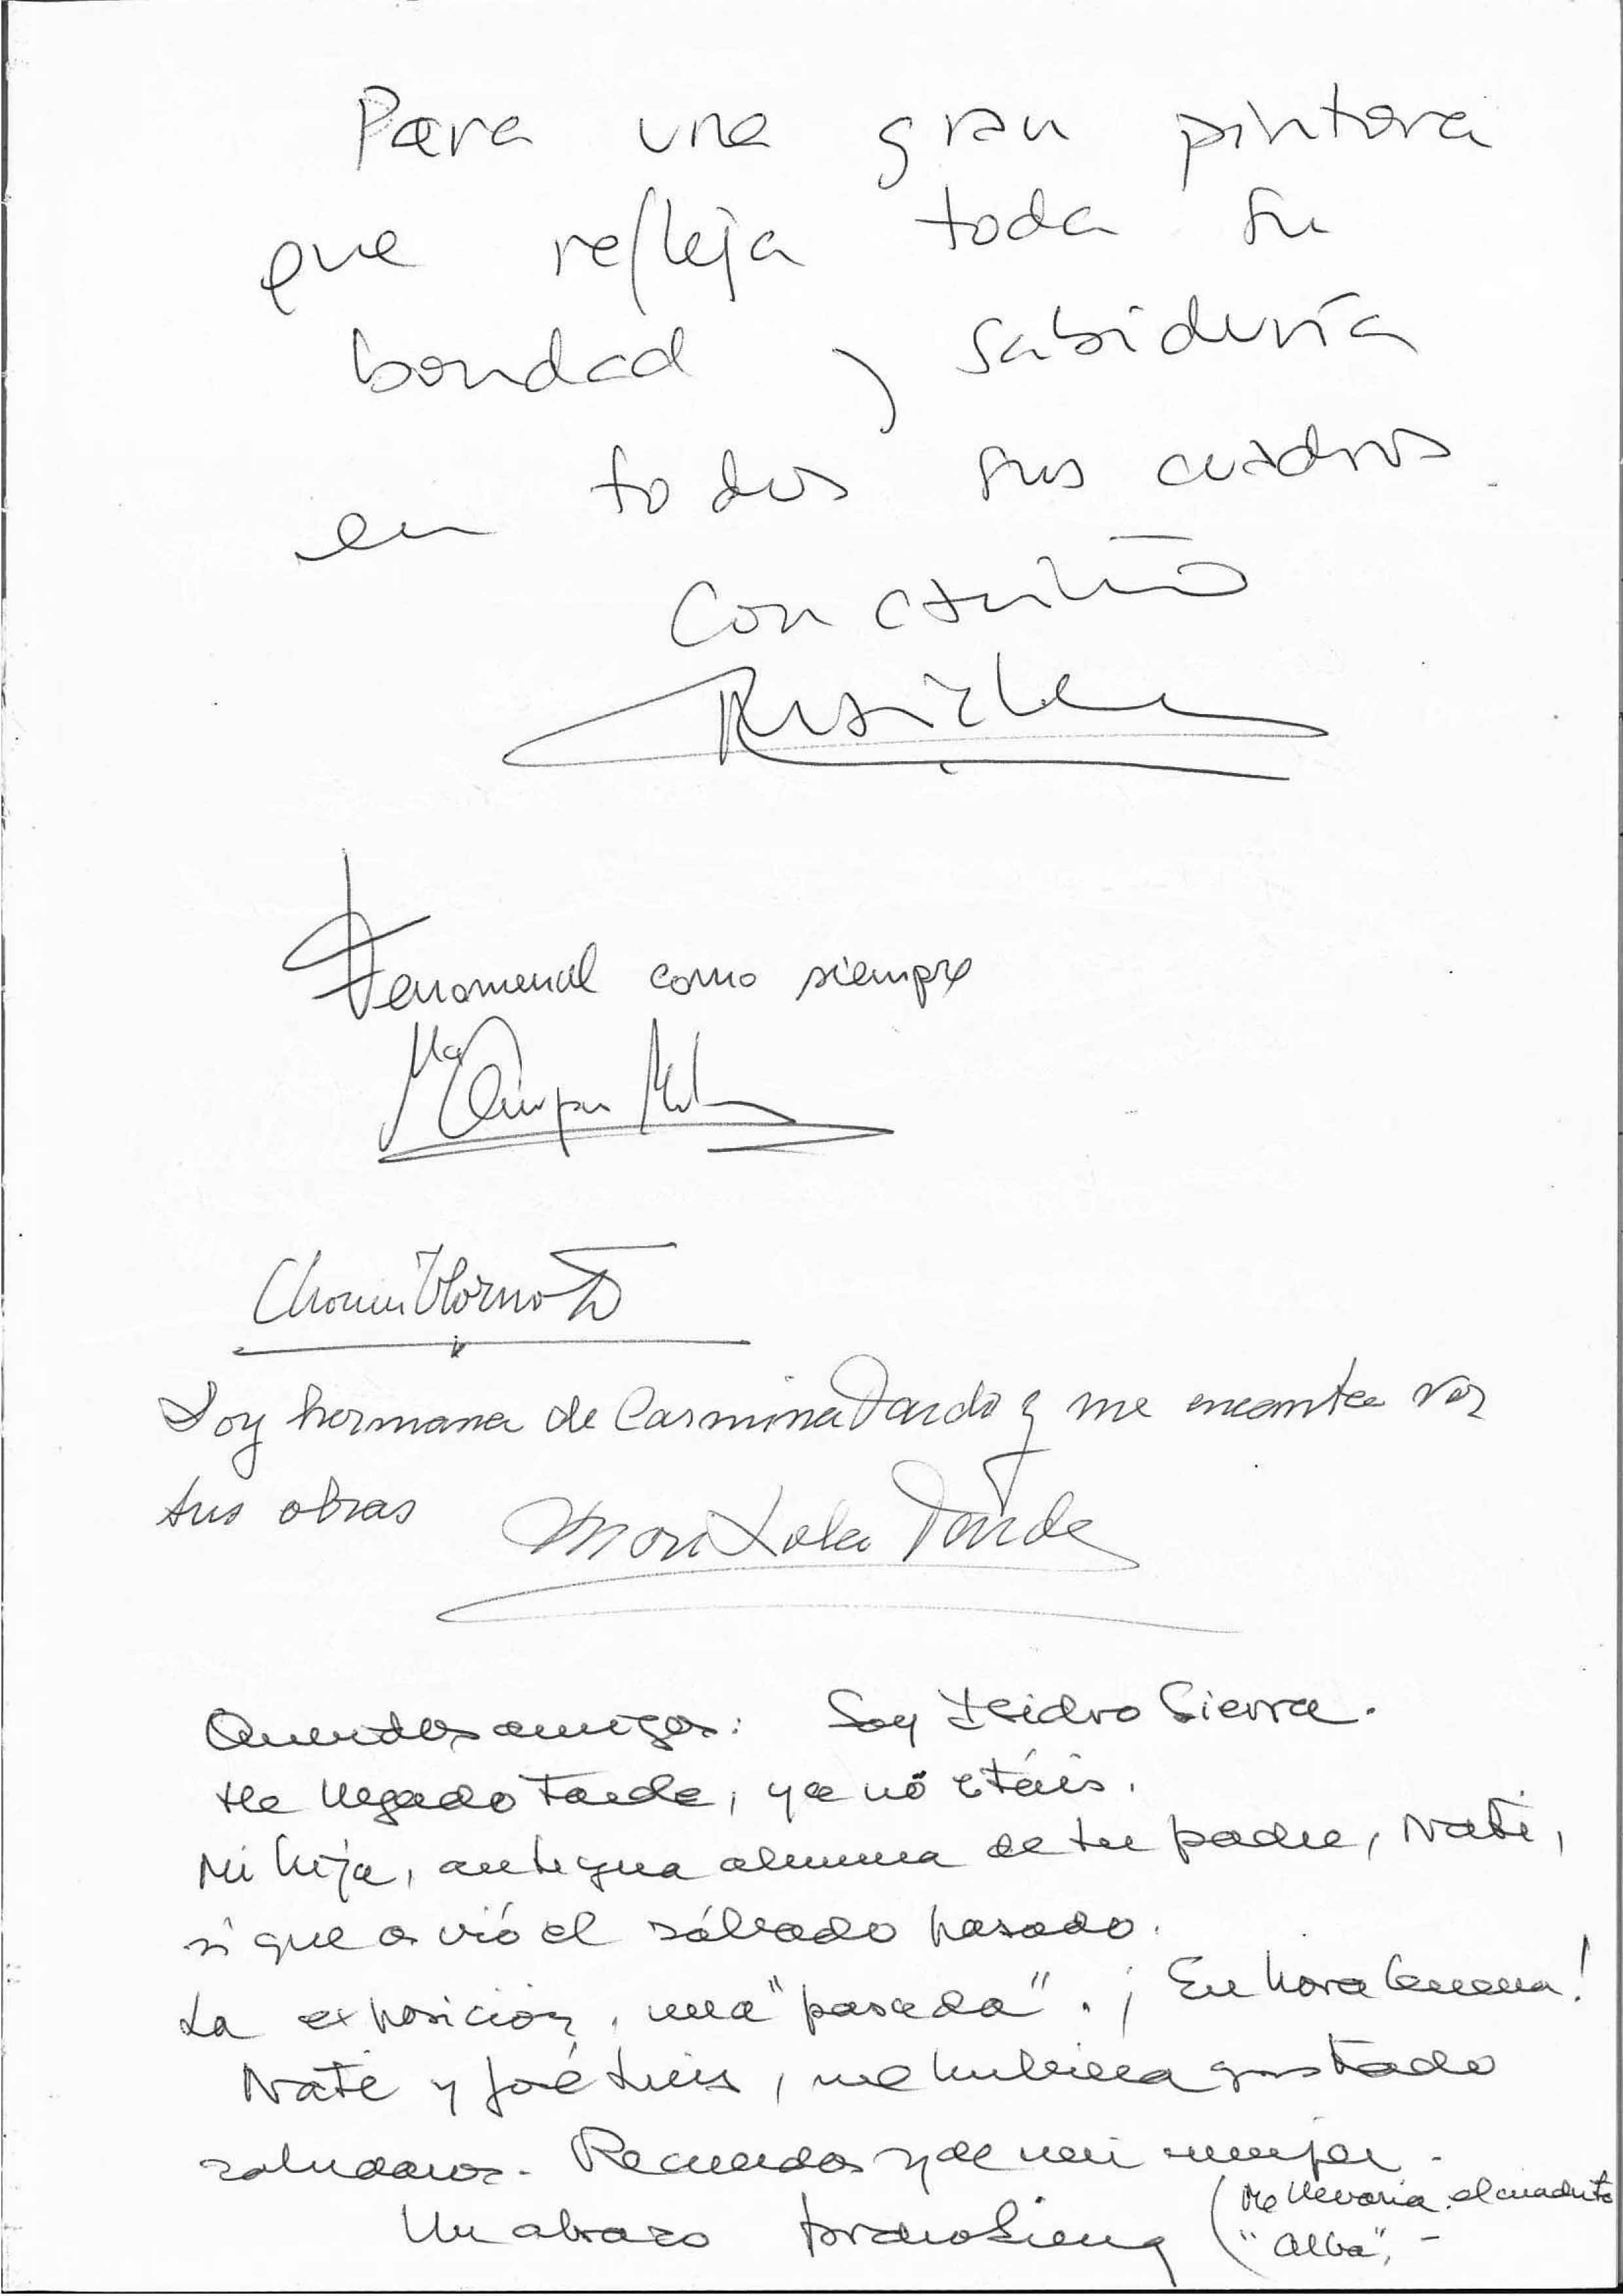 Para una gran pintora
que refleja toda su
bondad y sabiduría
en todos sus cuadros.
Con cariño
Fenomenal como siempre
Mª
Soy hermana de Carmina Pardo y me encanta ver
sus obras
Mari Lola Pardo
Queridos amigos: Soy Isidro Sierra.
He llegado tarde, ya no estáis.
Mi hija, antigua alumna de tu padre, Nati,
sí que os vió el sábado pasado.
La exposición, una "pasada". ¡Enhorabuena!
Nati y José Luis, me hubiera gustado
saludaros. Recuerdos y de mi mujer.
Un abrazo Isidro Sierra (Me llevaría el cuadrito
"Alba".-